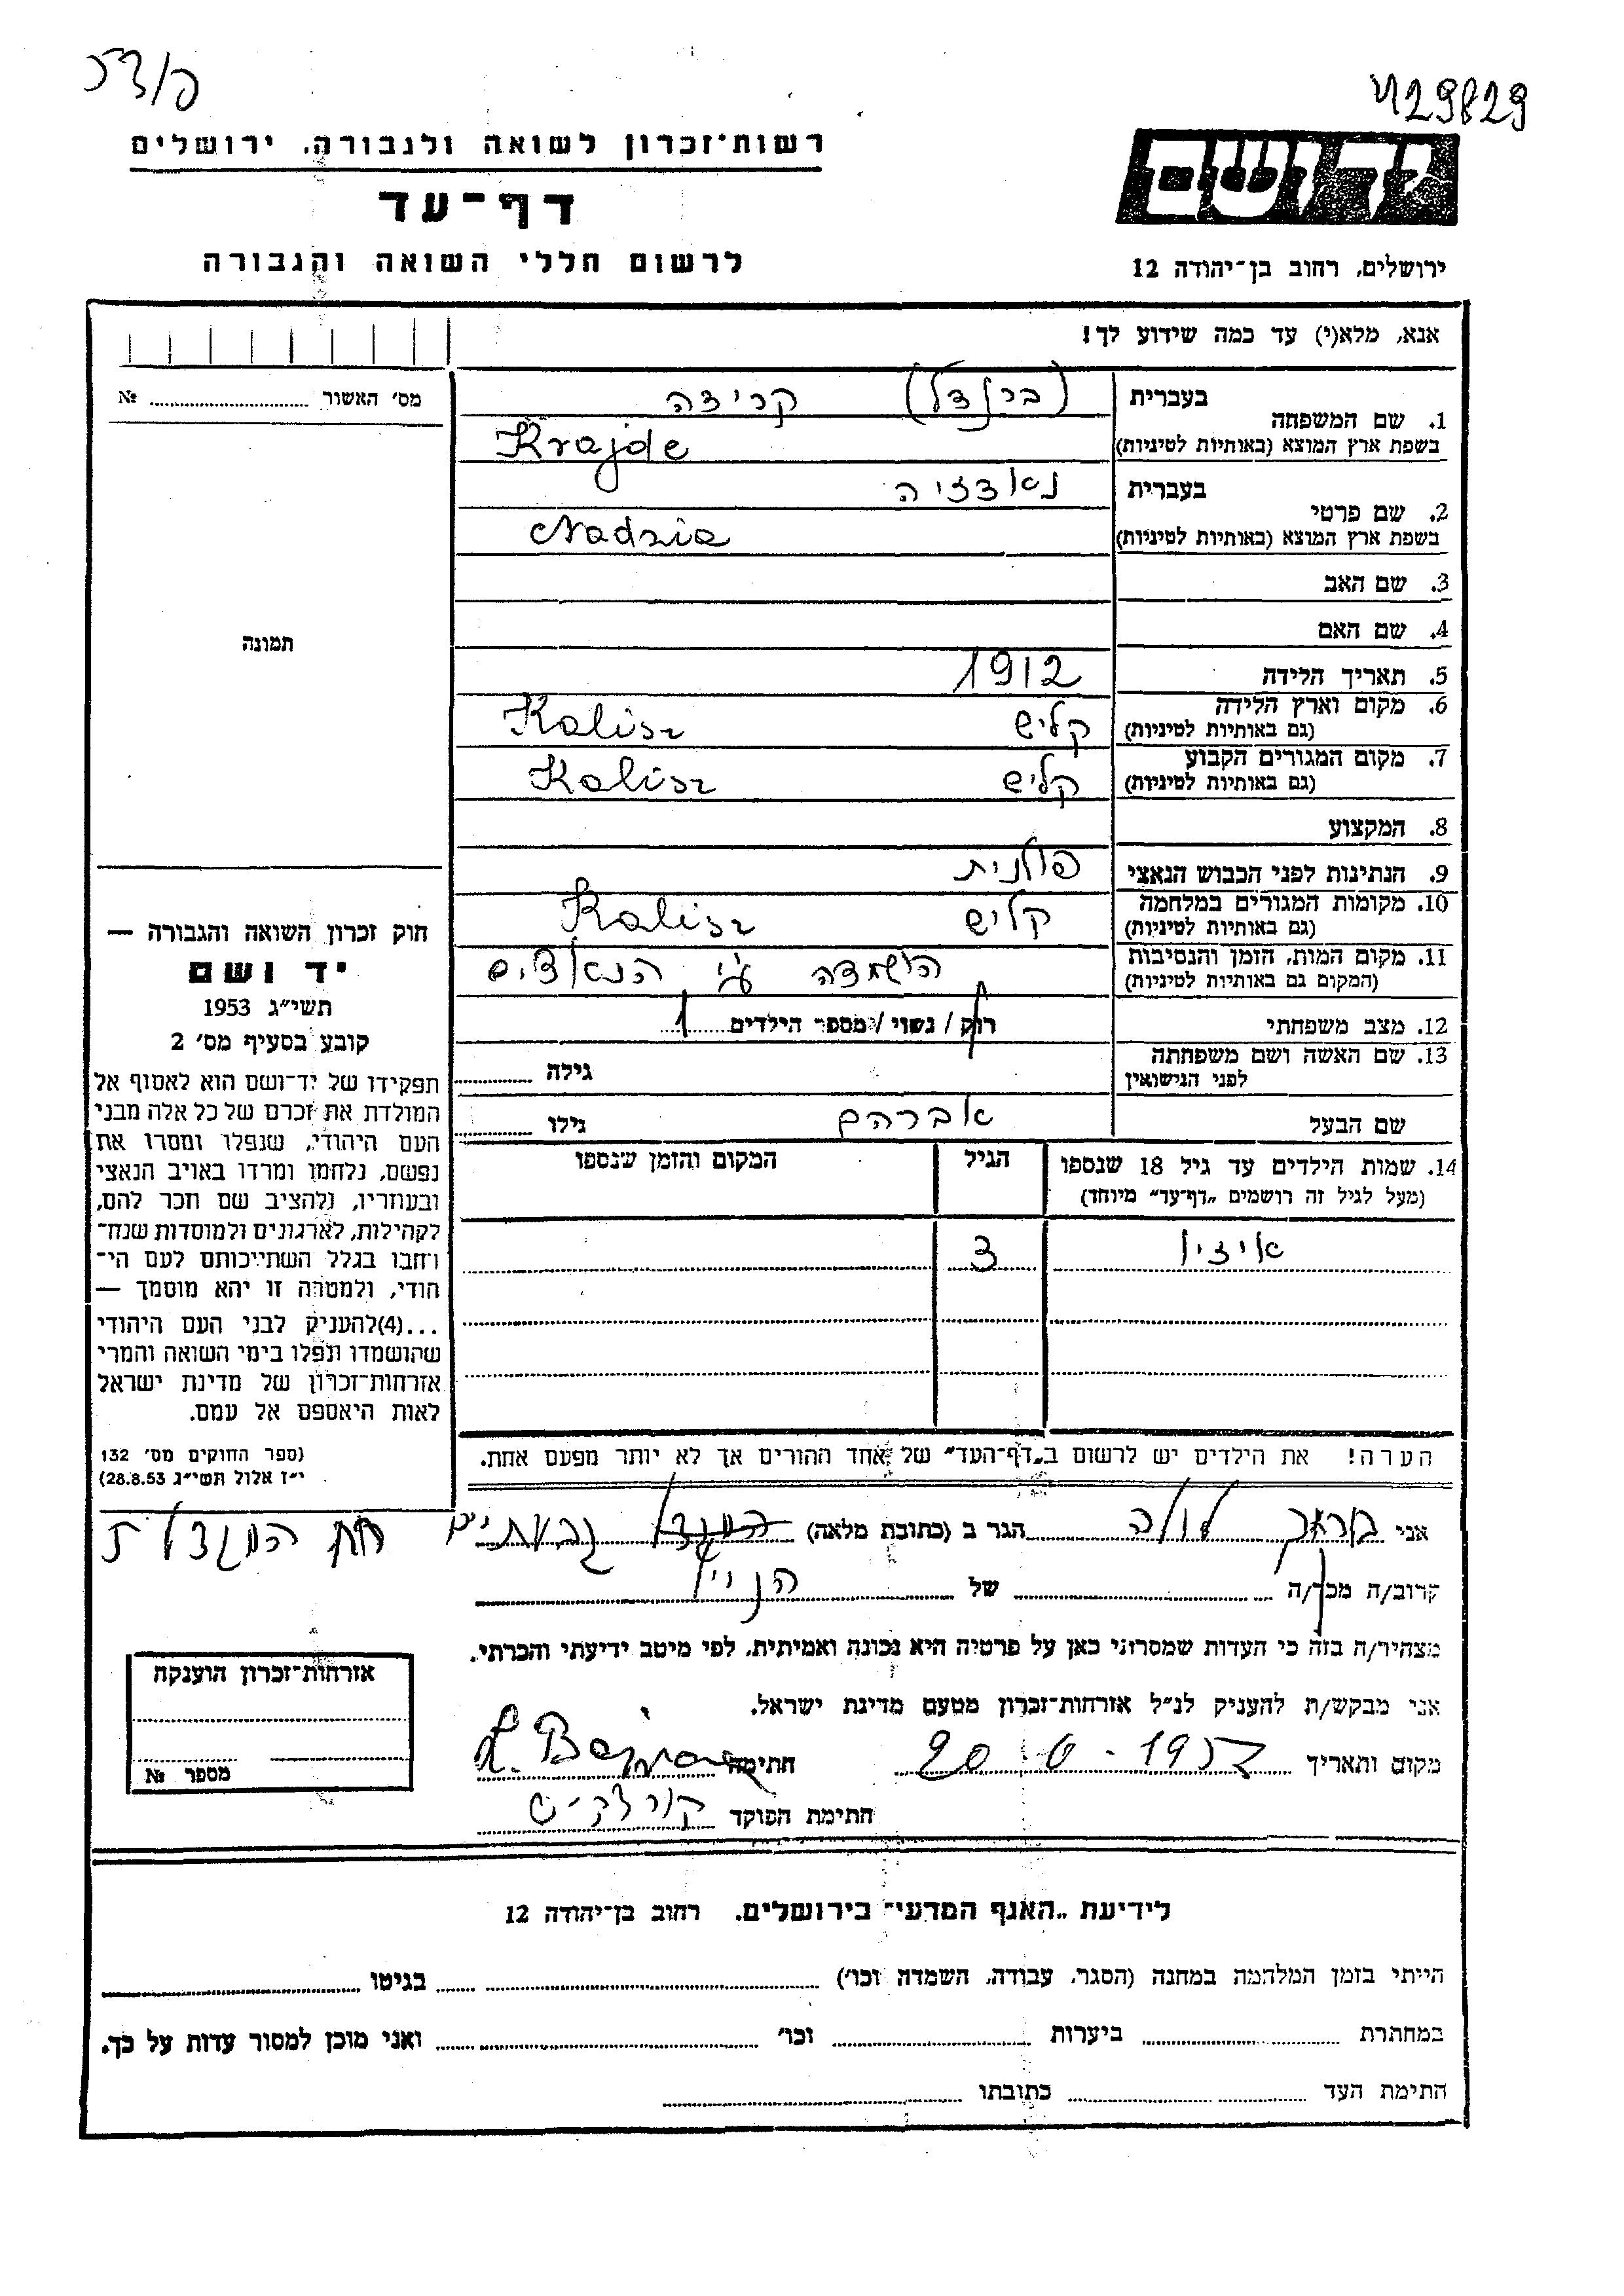 429829
רשות־זכרון לשואה ולגבורה, ירושלים
דף־עד
לרשום חללי השואה והגבורה
ידושם
ירושלים, רחוב בן־יהודה 12
אנא, מלא(י) עד כמה שידוע לך!
מס׳ האשור №
תמונה
1. שם המשפחה בעברית (ברנדל) קרידה
בשפת ארץ המוצא (באותיות לטיניות) Krajde
2. שם פרטי בעברית נאדזיה
בשפת ארץ המוצא (באותיות לטיניות) Nadzia
3. שם האב
4. שם האם
5. תאריך הלידה 1912
6. מקום וארץ הלידה (גם באותיות לטיניות) קליש Kalisz
7. מקום המגורים הקבוע (גם באותיות לטיניות) קליש Kalisz
8. המקצוע
9. הנתינות לפני הכבוש הנאצי פולנית
10. מקומות המגורים במלחמה (גם באותיות לטיניות) קליש Kalisz
11. מקום המות, הזמן והנסיבות (המקום גם באותיות לטיניות) הושמדה ע״י הנאצים
12. מצב משפחתי רווק / נשוי / מספר הילדים 1
13. שם האשה ושם משפחתה לפני הנישואין גילה
שם הבעל אברהם גילו
14. שמות הילדים עד גיל 18 שנספו הגיל המקום והזמן שנספו
(מעל לגיל זה רושמים „דף־עד״ מיוחד)
איזיו 3
הערה! את הילדים יש לרשום ב„דף־העד״ של אחד ההורים אך לא יותר מפעם אחת.
חוק זכרון השואה והגבורה —
יד ושם
תשי״ג 1953
קובע בסעיף מס׳ 2
תפקידו של יד־ושם הוא לאסוף אל
המולדת את זכרם של כל אלה מבני
העם היהודי, שנפלו ומסרו את
נפשם, נלחמו ומרדו באויב הנאצי
ובעוזריו, ולהציב שם וזכר להם,
לקהילות, לארגונים ולמוסדות שנח־
רחבו בגלל השתייכותם לעם הי־
הודי, ולמטרה זו יהא מוסמך —
...(4)להעניק לבני העם היהודי
שהושמדו ונפלו בימי השואה והמרי
אזרחות־זכרון של מדינת ישראל
לאות היאספם אל עמם.
(ספר החוקים מס׳ 132
י״ז אלול תשי״ג 28.8.53)
אני לולה הגר ב (כתובת מלאה) גבעתיים
קרוב/ה מכר/ה של הנ״ל
מצהיר/ה בזה כי העדות שמסרתי כאן על פרטיה היא נכונה ואמיתית, לפי מיטב ידיעתי והכרתי.
אני מבקש/ת להעניק לנ״ל אזרחות־זכרון מטעם מדינת ישראל.
מקום ותאריך 20-6-1957 חתימה
חתימת הפוקד
אזרחות־זכרון הוענקה
מספר №
לידיעת „האגף המדעי״ בירושלים, רחוב בן־יהודה 12
הייתי בזמן המלחמה במחנה (הסגר, עבודה, השמדה וכו׳) בגיטו
במחתרת ביערות וכו׳ ואני מוכן למסור עדות על כך.
חתימת העד כתובתו